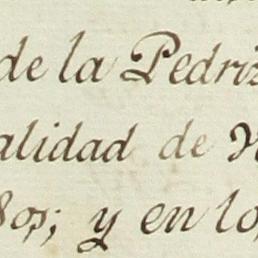 de la Pedriz
alidad de
y en lo